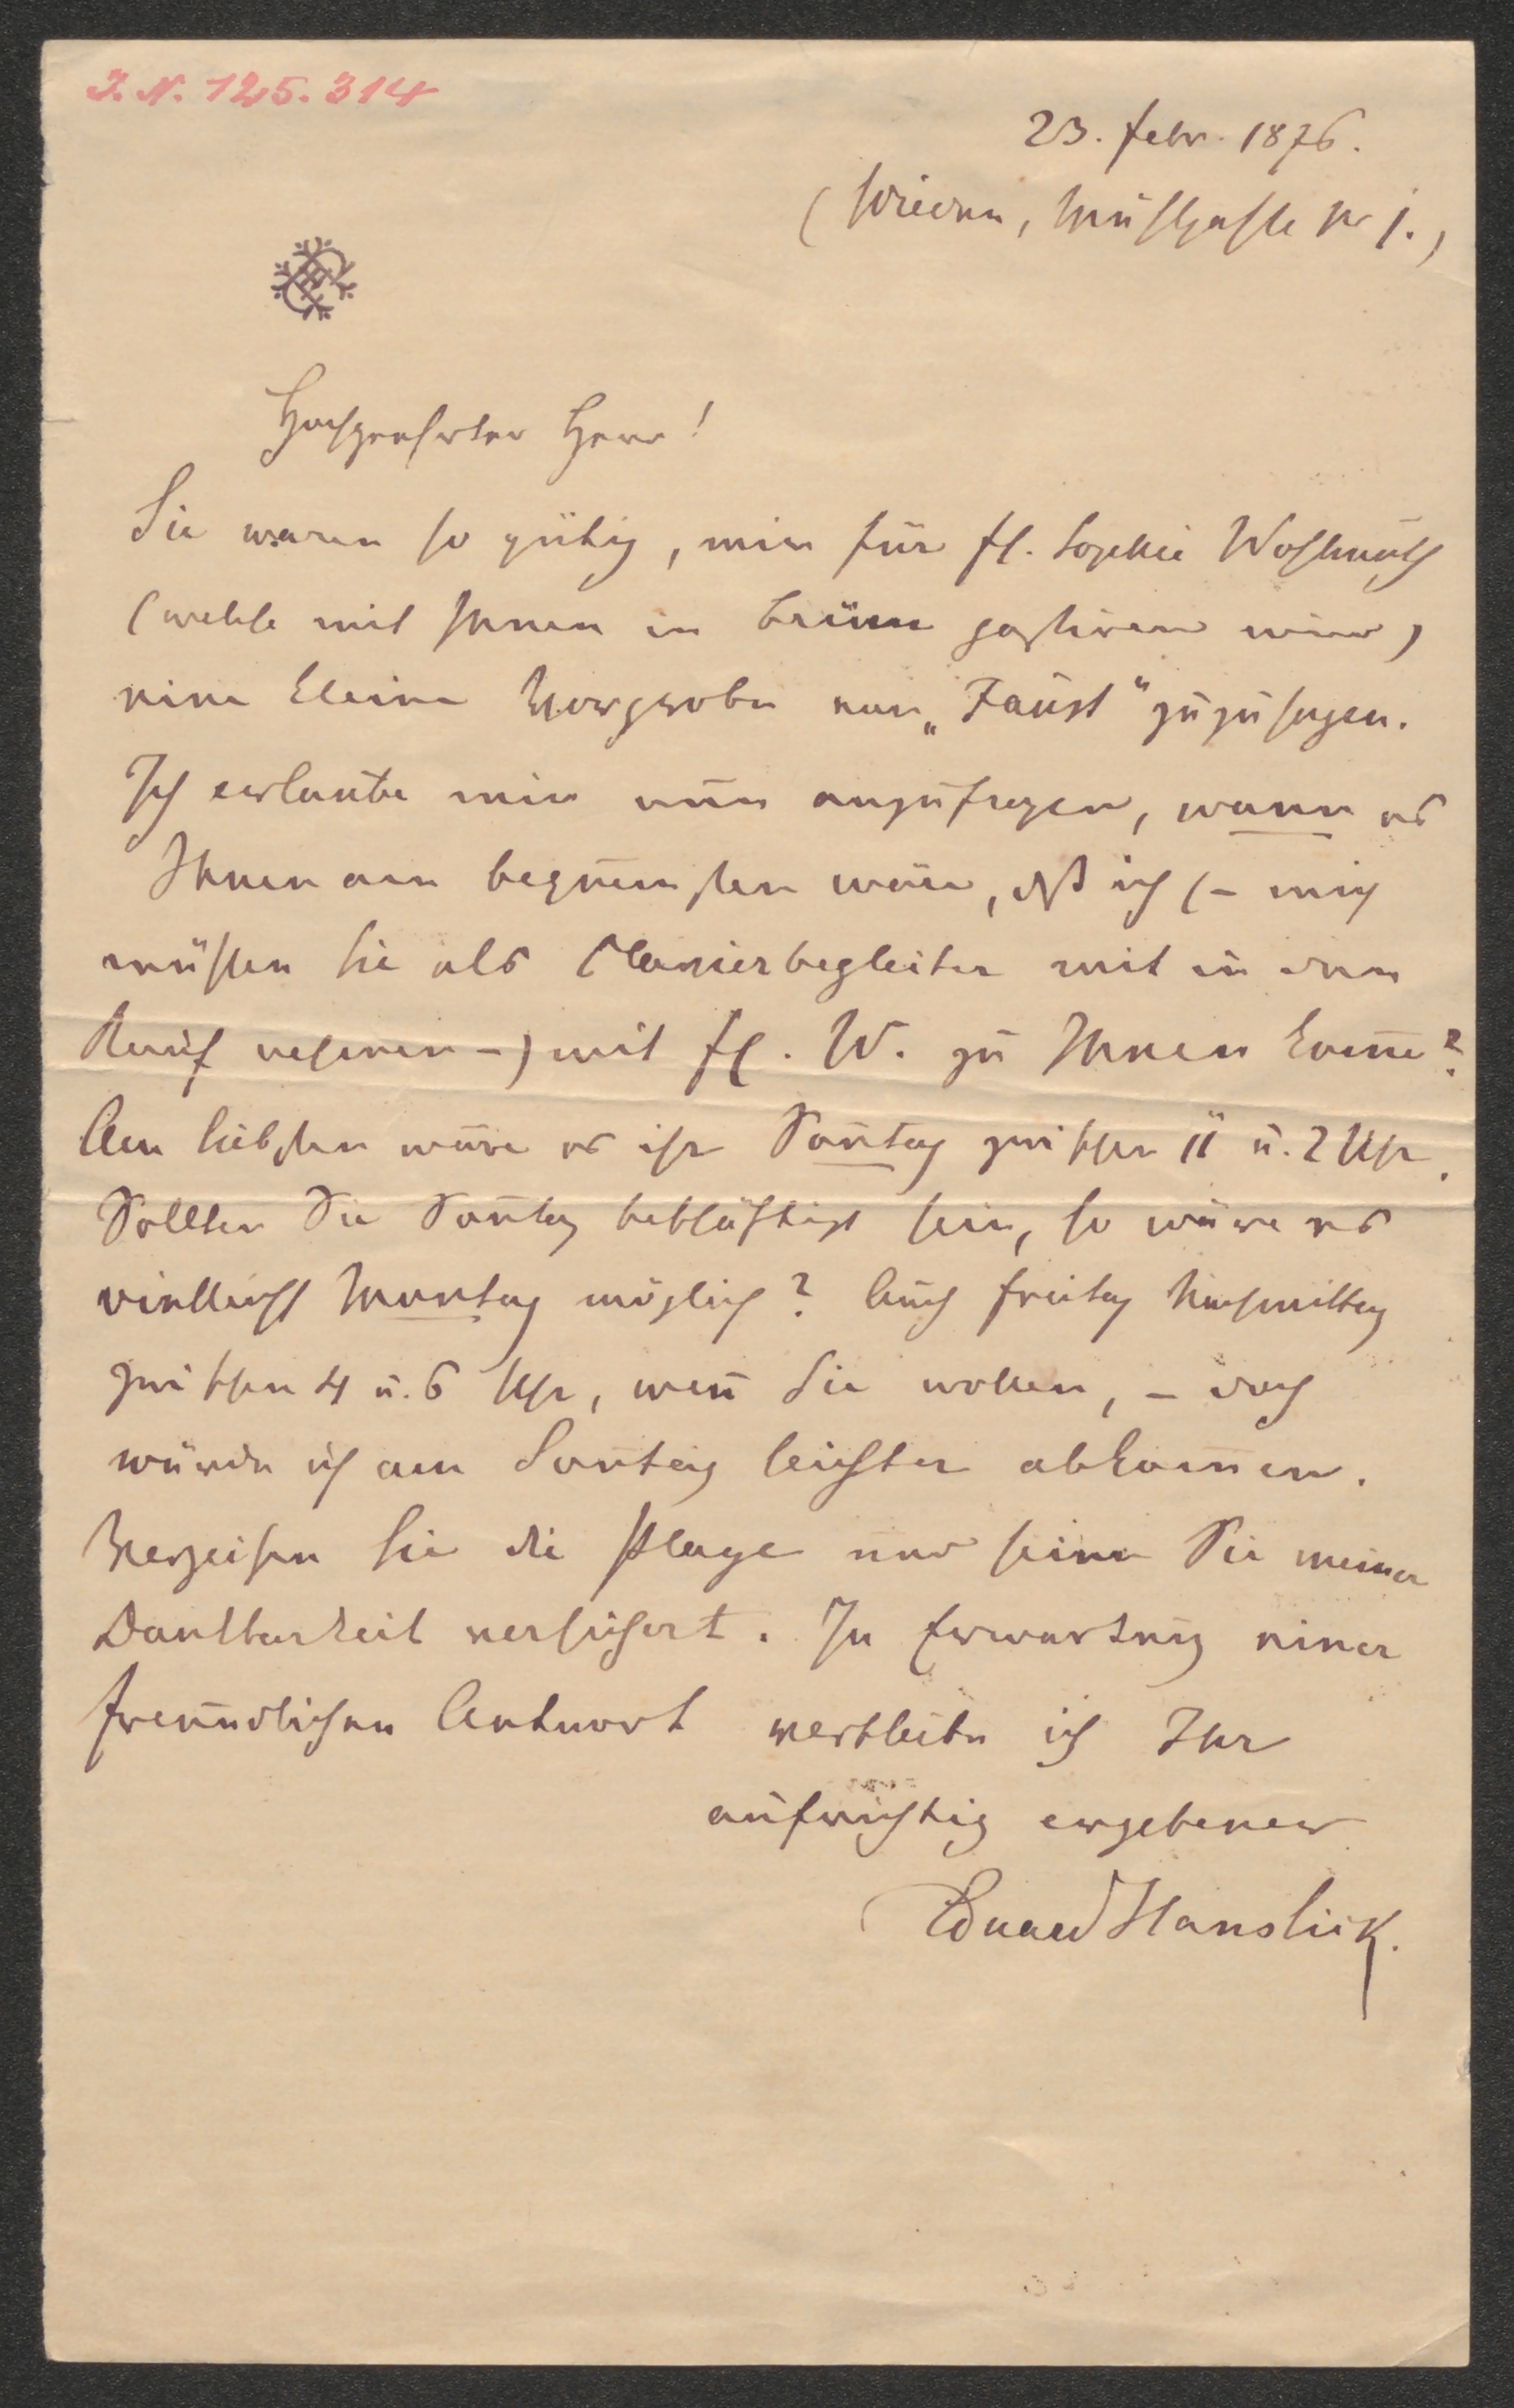 J. N. 125.314
23. Febr. 1876.
(Wieden, Mühlgasse Nr 1.)
Hochgeehrter Herr!
Sie waren so gütig, mir für Frl. Sophie Wohlmuth
(welche mit Ihnen in Brünn gastiren wird)
eine kleine Vorprobe von „Faust“ zuzusagen.
Ich erlaube mir nun anzufragen, wann es
Ihnen am bequemsten wäre, dß ich (– mich
müssen Sie als Clavierbegleiter mit in den
Kauf nehmen –) mit Frl. W. zu Ihnen kom̅e?
Am liebsten wäre es ihr Son̅tag zwischen 11 u. 2 Uhr.
Sollten Sie Son̅tag beschäftigt sein, so wäre es
vielleicht Montag möglich? Auch Freitag Nachmittag
zwischen 4 u. 6 Uhr, wen̅ Sie wollen, – doch
würde ich am Son̅tag leichter abkom̅en.
Verzeihen Sie die Plage und seien Sie meiner
Dankbarkeit versichert. In Erwartung einer
freundlichen Antwort verbleibe ich Ihr
aufrichtig ergebener
Eduard Hanslick.